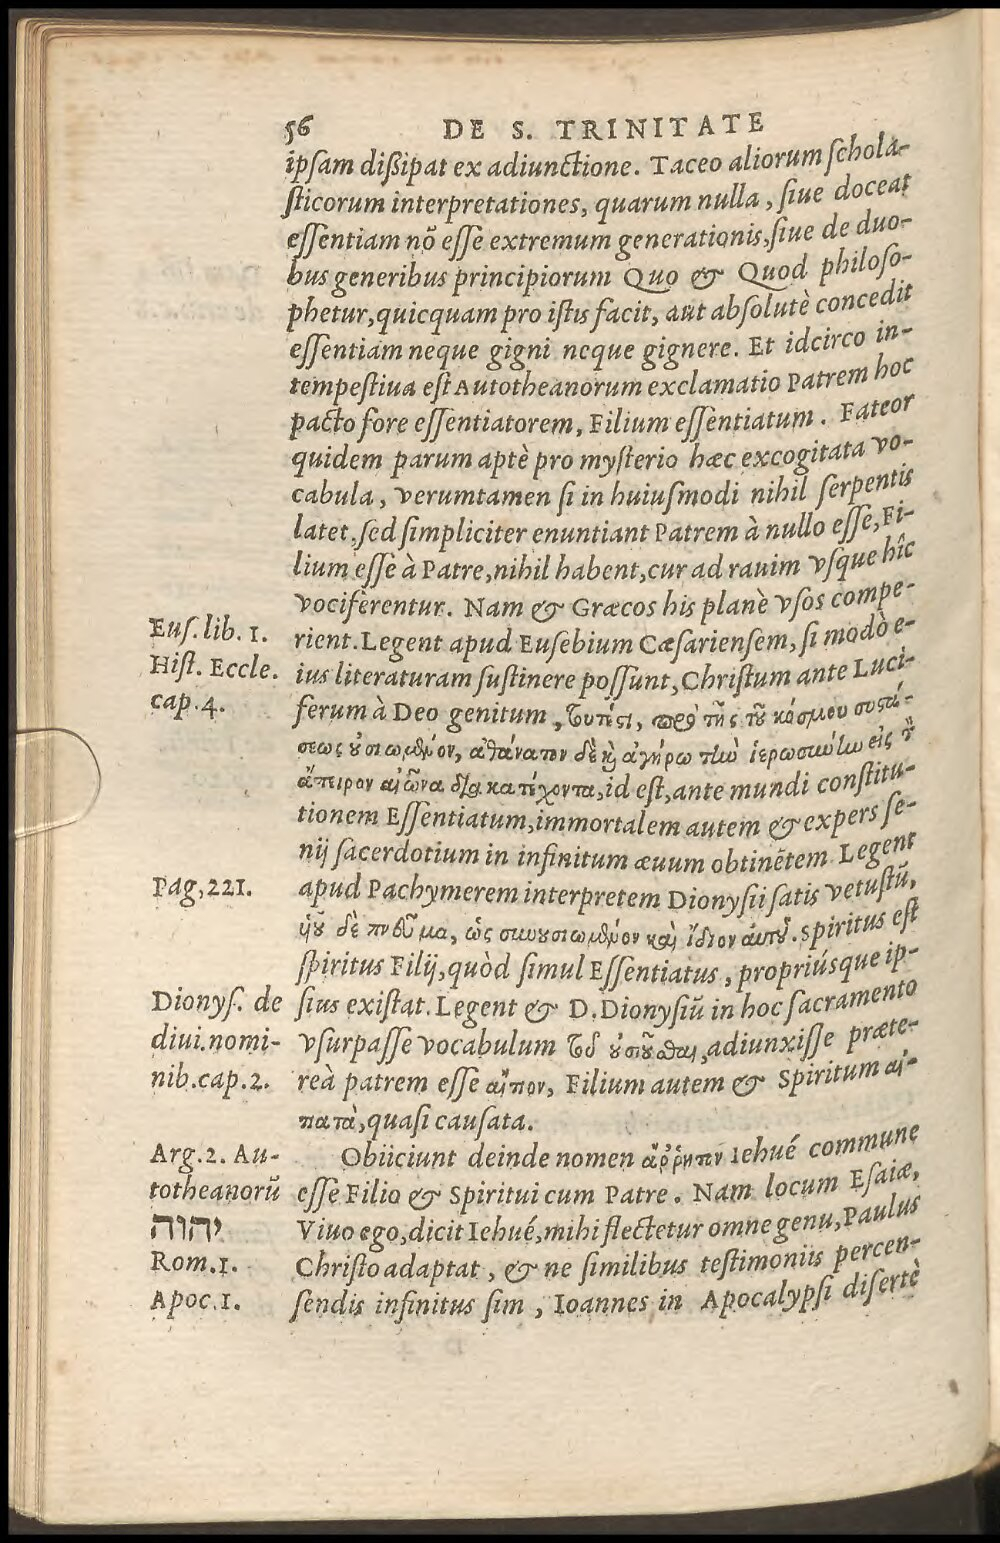 56 DE S. TRINITATE
ipsam dißipat ex adiunctione. Taceo aliorum schola-
sticorum interpretationes, quarum nulla, siue doceat
essentiam nõ esse extremum generationis, siue de duo-
bus generibus principiorum Quo & Quod philoso-
phetur, quicquam pro istis facit, aut absolutè concedit
essentiam neque gigni neque gignere. Et idcirco in-
tempestiua est Autotheanorum exclamatio Patrem hoc
pacto fore essentiatorem, Filium essentiatum. Fateor
quidem parum aptè pro mysterio hæc excogitata vo-
cabula, verumtamen si in huiusmodi nihil serpentis
latet, sed simpliciter enuntiant Patrem à nullo esse, Fi-
lium esse à Patre, nihil habent, cur ad rauim vsque hîc
vociferentur. Nam & Græcos his planè vsos compe-
Eus. lib. 1.
rient. Legent apud Eusebium Cæsariensem, si modò e-
Hist. Eccle.
ius literaturam sustinere possunt, Christum ante Luci-
cap. 4.
ferum à Deo genitum, τουτέστι, πρὸ τῆς τοῦ κόσμου συστά-
σεως οὐσιωμένον, ἀθάνατον δὲ καὶ ἀγήρω τὴν ἱερωσύνην εἰς τὸν
ἄπειρον αἰῶνα διακατέχοντα, id est, ante mundi constitu-
tionem Essentiatum, immortalem autem & expers se-
nij sacerdotium in infinitum æuum obtinẽtem Legent
Pag, 221.
apud Pachymerem interpretem Dionysii satis vetustũ,
ἱοῦ δὲ πνεῦμα, ὡς συνουσιωμένον καὶ ἴδιον αὐτοῦ. Spiritus est
spiritus Filij, quòd simul Essentiatus, propriúsque ip-
Dionys. de
sius existat. Legent & D. Dionysiũ in hoc sacramento
diui. nomi-
vsurpasse vocabulum τοῦ οὐσιοῦσθαι, adiunxisse præte-
nib. cap. 2.
reà patrem esse αἴτιον, Filium autem & Spiritum αἰ-
τιατὰ, quasi causata.
Arg. 2. Au-
Obiiciunt deinde nomen ἄῤῥητον Iehué commune
totheanorũ
esse Filio & Spiritui cum Patre. Nam locum Esaiæ,
יהוה
Viuo ego, dicit Iehué, mihi flectetur omne genu, Paulus
Rom. 1.
Christo adaptat, & ne similibus testimoniis percen-
Apoc. 1.
sendis infinitus sim, Ioannes in Apocalypsi disertè